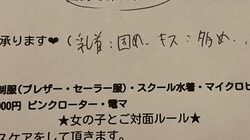 承ります♥ (乳首:固め、キス:多め、
制服(ブレザー・セーラー服)・スクール水着・マイクロビ
000円 ピンクローター・電マ
★女の子とご対面ルール★
スケアをして頂きます。